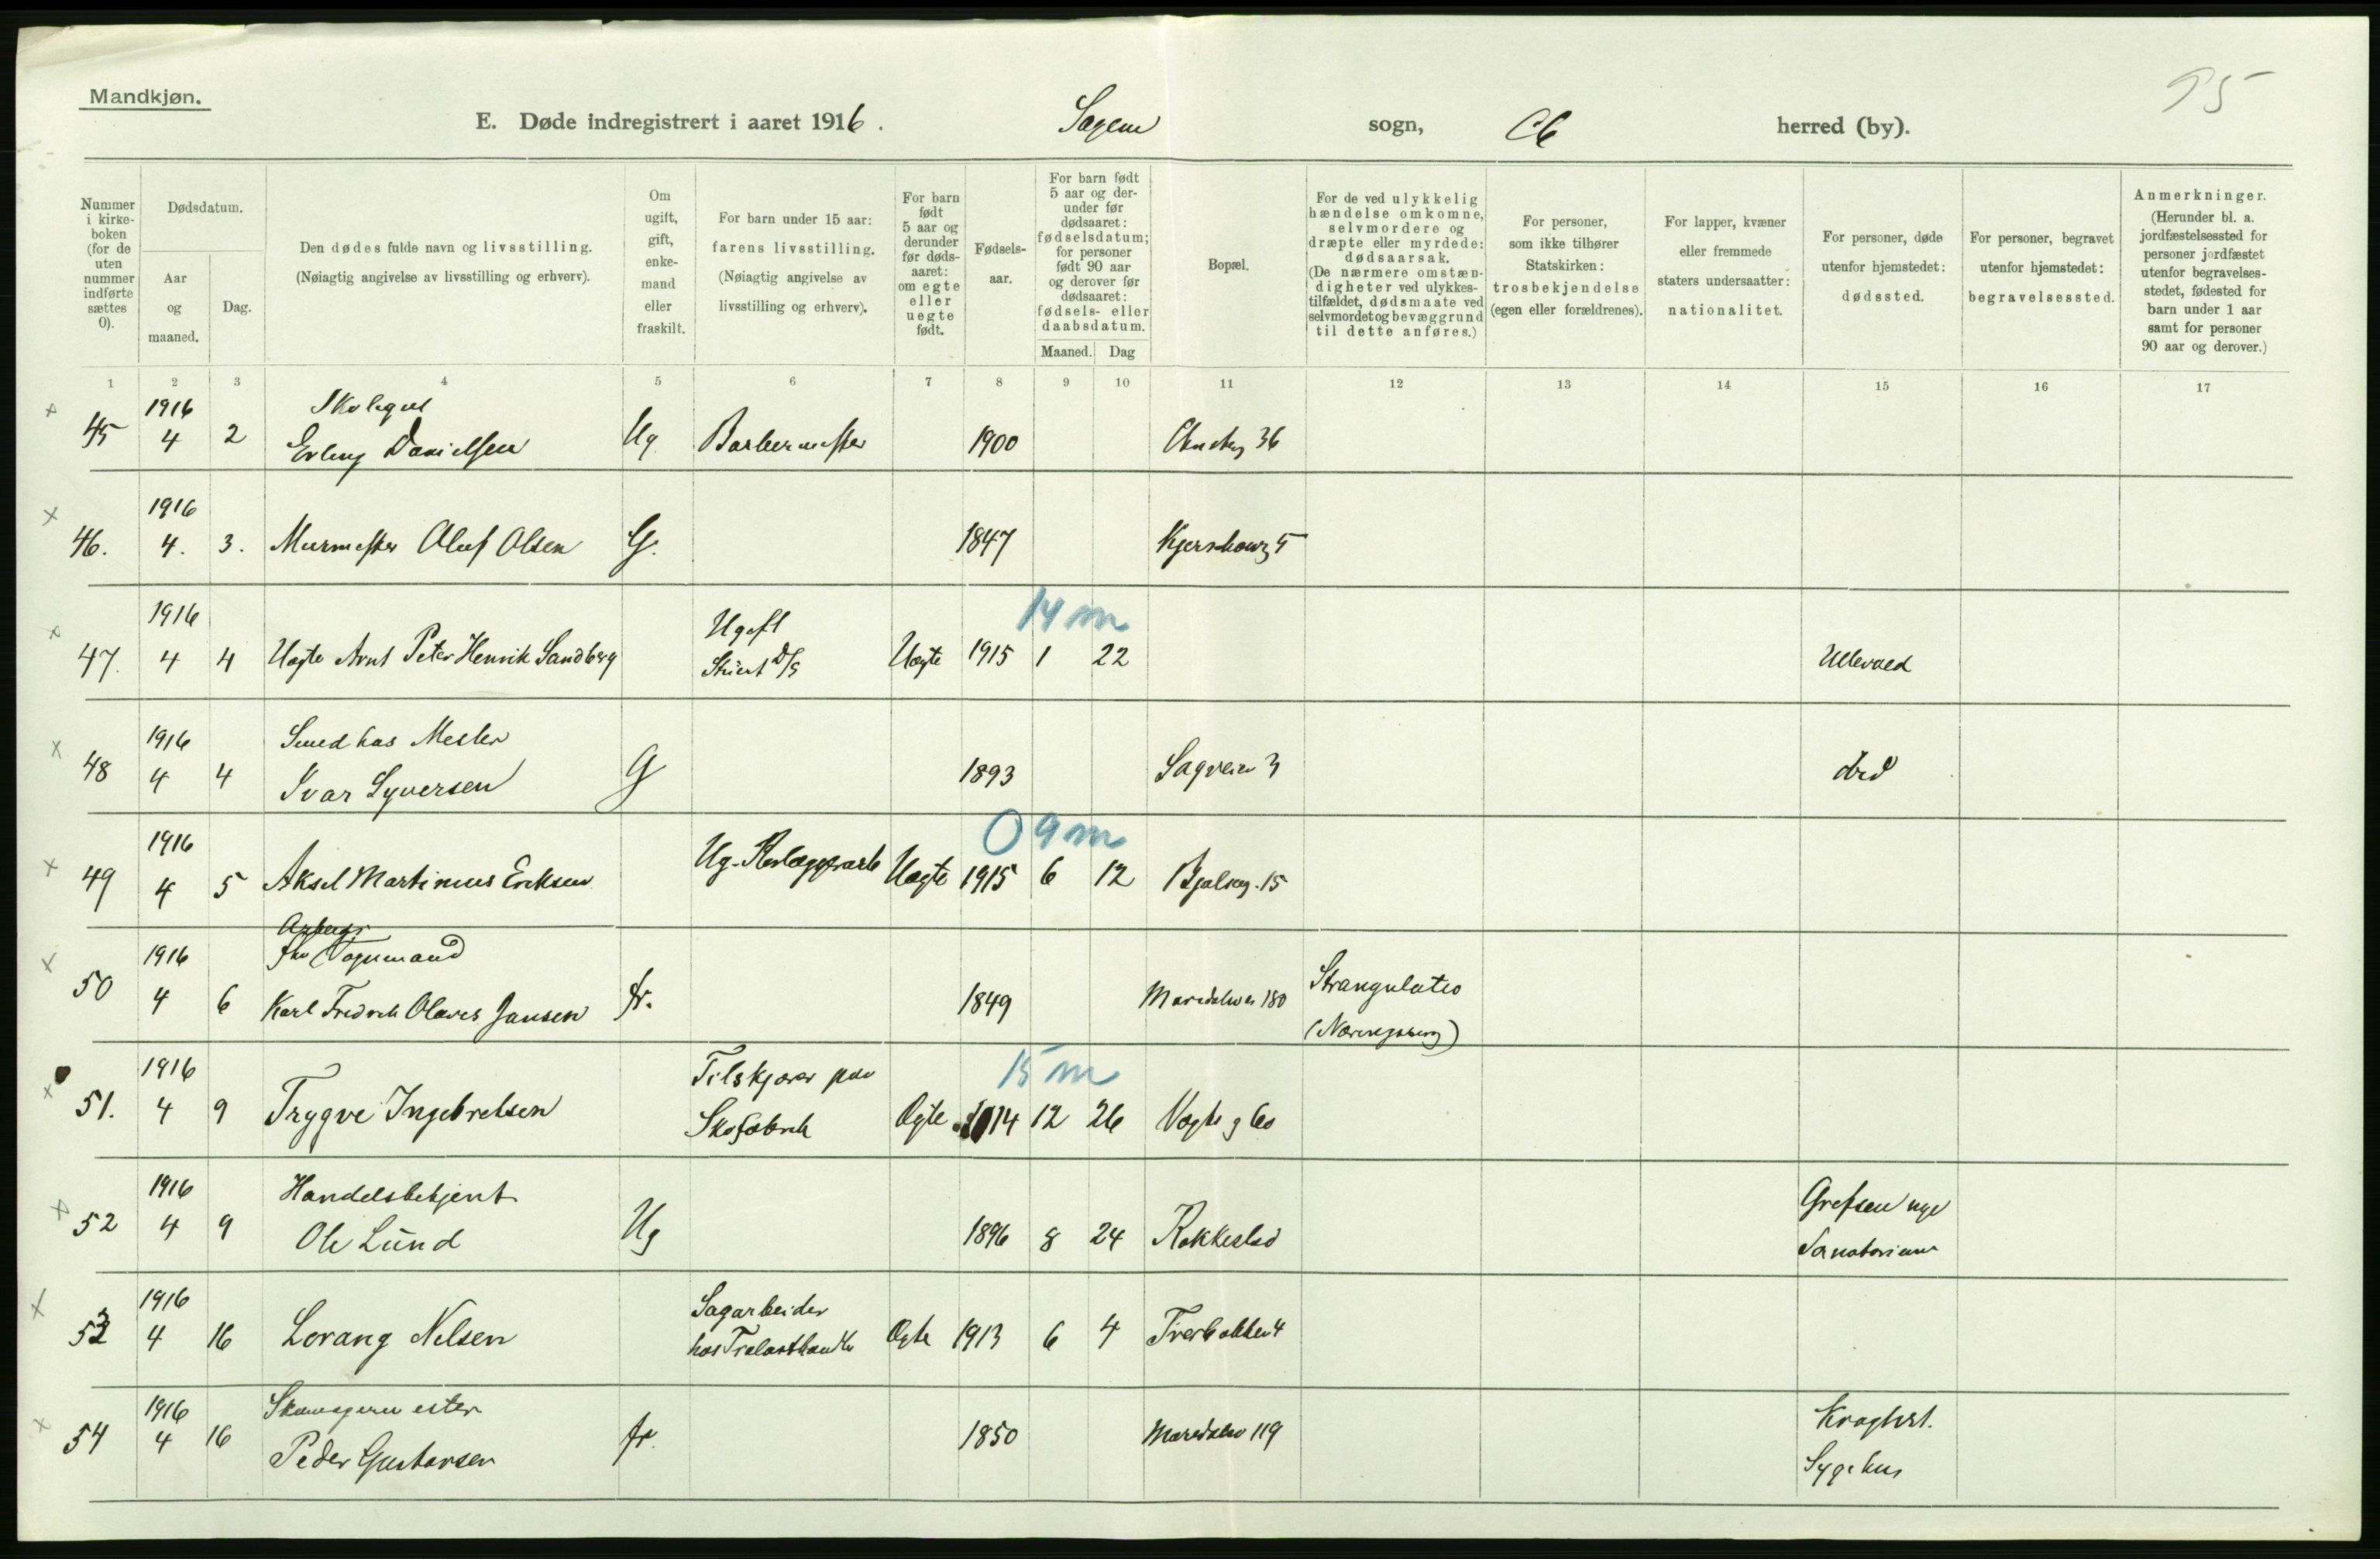 Mandkjøn.
95
E. Døde indregistrert i aaret 1916. Sagene sogn, herred (by).
Nummer i kirkeboken (for de uten nummer indførte sættes 0).
Dødsdatum.
Aar og maaned.
Dag.
Den dødes fulde navn og livsstilling.
(Nøiagtig angivelse av livsstilling og erhverv).
Om ugift, gift, enkemand eller fraskilt.
For barn under 15 aar: farens livsstilling. (Nøiagtig angivelse av livsstilling og erhverv).
For barn født 5 aar og derunder før dødsaaret: om egte eller uegte født.
Fødselsaar.
For barn født 5 aar og derunder før dødsaaret: fødselsdatum; for personer født 90 aar og derover før dødsaaret: fødsels- eller daabsdatum.
Maaned. Dag
Bopæl.
For de ved ulykkelig hændelse omkomne, selvmordere og dræpte eller myrdede: dødsaarsak. (De nærmere omstændigheter ved ulykkestilfældet, dødsmaate ved selvmordet og bevæggrund til dette anføres.)
For personer, som ikke tilhører Statskirken: trosbekjendelse (egen eller forældrenes).
For lapper, kvæner eller fremmede staters undersaatter: nationalitet.
For personer, døde utenfor hjemstedet: dødssted.
For personer, begravet utenfor hjemstedet: begravelsessted.
Anmerkninger. (Herunder bl. a. jordfæstelsessted for personer jordfæstet utenfor begravelsesstedet, fødested for barn under 1 aar samt for personer 90 aar og derover.)
1 2 3 4 5 6 7 8 9 10 11 12 13 14 15 16 17
1916 Skolegut
45 4 2 Erling Danielsen Ug Barbermester 1900 36
1916
46. 4. 3. Murmester Oluf Olsen G. 1847 Kjerschowsg 5
14 m
1916 Ugift
47. 4 4 Uegte Arnt Peter Henrik Sandberg Uegte 1915 1 22 Ullevaal
1916 Smed hos Mester
48 4 4 Ivar Syversen G 1893 Sagveien 3 do
0 9 m
1916
49 4 5 Aksel Martinus Eriksen Ug. Uegte 1915 6 12 Bjølseng. 15
Arbeids
1916 fhv Vognmand Strangulatio
50 4 6 Karl Fredrik Olaves Jansen fr. 1849 Maridalsvei 180 (Næringssorg)
15 m
1916 Tilskjærer paa
51. 4 9 Trygve Ingebretsen Skofabrik Egte 1914 12 26 Vogts g 60
1916 Handelsbetjent Grefsen nye
52 4 9 Ole Lund Ug 1896 8 24 Rakkestad Sanatorium
1916 Sagarbeider
53 4 16 Lorang Nilsen hos Trælasthandler Egte 1913 6 4 Tverbakken 4
1916 Skomagermester Kroghst.
54 4 16 Peder Gustavsen fr. 1850 Maridalsv 119 Sygehus